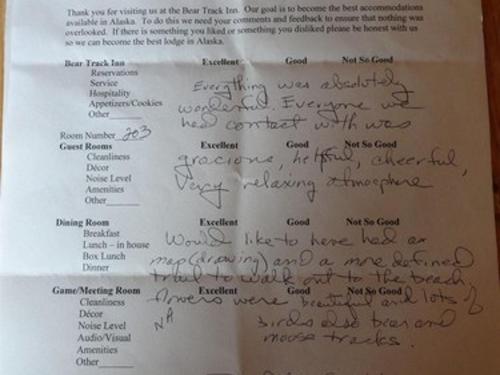 Thank you for visiting us at the Bear Track Inn. Our goal is to become the best accommodations
available in Alaska. To do this we need your comments and feedback to ensure that nothing was
overlooked. If there is something you liked or something you disliked please be honest with us
so we can become the best lodge in Alaska.
Bear Track Inn Excellent Good Not So Good
Reservations
Service
Hospitality
Appetizers/Cookies
Other
Everything was absolutely
wonderful. Everyone we
had contact with was
Room Number 203
Guest Rooms Excellent Good Not So Good
Cleanliness
Décor
Noise Level
Amenities
Other
gracious, helpful, cheerful,
Very relaxing atmosphere
Dining Room Excellent Good Not So Good
Breakfast
Lunch – in house
Box Lunch
Dinner
Would like to have had a
map (drawing) and a more defined
trail to walk out to the beach,
Game/Meeting Room Excellent Good Not So Good
Cleanliness
Décor
Noise Level
Audio/Visual
Amenities
Other
flowers were beautiful and lots of
NA
birds also bear and
moose tracks.